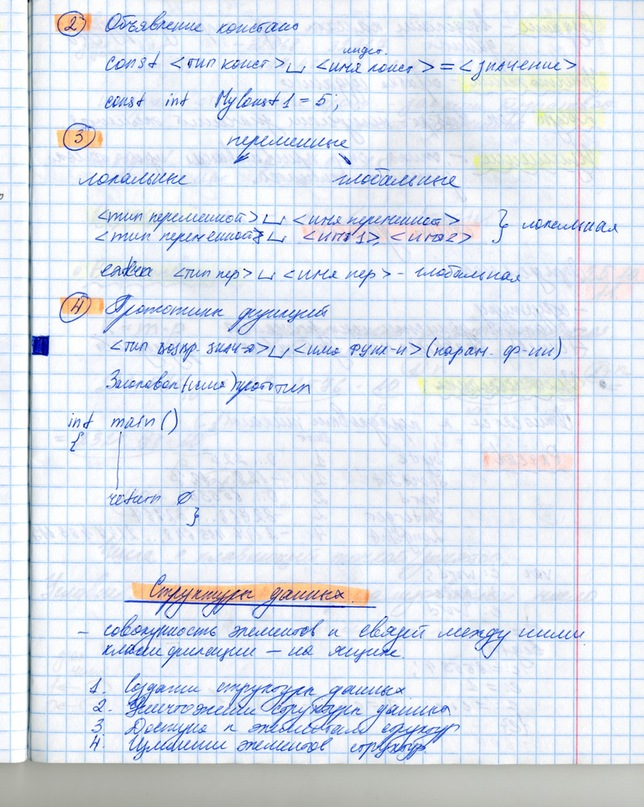 2 Объявление констант
const <тип конст>␣<имя конст>=<значение>
const int MyConst1 = 5;
3 переменные
локальные глобальные
<тип переменной>␣<имя переменной>
<тип переменной>␣ <имя1> <имя2> } локальная
<тип пер>␣<имя пер> - глобальная
4 Прототипы функций
<тип возвр. знач-я>␣<имя функ-и>(парам. ф-ии)
Заголовок(имя)прототип
int main()
{
return 0
}
Структуры данных
- совокупность элементов и связей между ними
классификации - на ящике
1. Создании структуры данных
2. Уничтожении структуры данных
3 Доступа к элементам структур
4. Изменении элементов структур